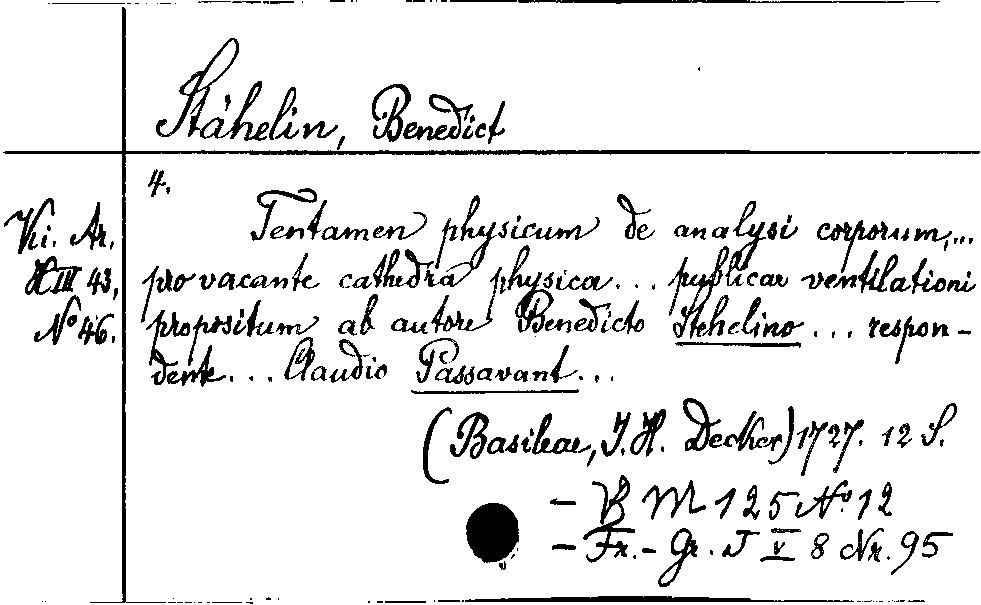 Stähelin, Benedict
4.
Vii. Ar.
H III 43,
No 46.
Tentamen physicum de analysi corporum,...
pro vacante cathedrâ physica... publicae ventilationi
propositum ab autore Benedicto Stehelino... respon-
dente... Claudio Passavant...
(Basileae, J. H. Decker) 1727. 12 S.
- B M 125 No 12
- Fr.- Gr. J V 8 Nr. 95